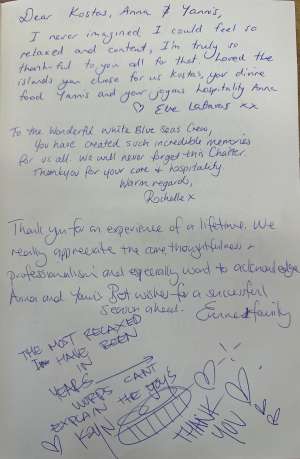 Dear Kostas, Anna & Yannis,
I never imagined I could feel so
relaxed and content, I'm truly so
thankful to you all for that. Loved the
islands you chose for us Kostas, your divine
food Yannis and your hospitality Anna
♡ Eve xx
To the Wonderful White Blue Seas Crew,
You have created such incredible memories
for us all. We will never forget this Charter.
Thankyou for your care & hospitality
Warm regards,
Rochelle x
Thank you for an experience of a lifetime. We
really appreciate the care thoughtfulness &
professionalism and especially want to acknowledge
Anna and Yannis Best wishes for a successful
season ahead. & family
THE MOST RELAXED
I HAVE BEEN
IN
YEARS
WORDS CANT
EXPLAIN
THANK
YOU